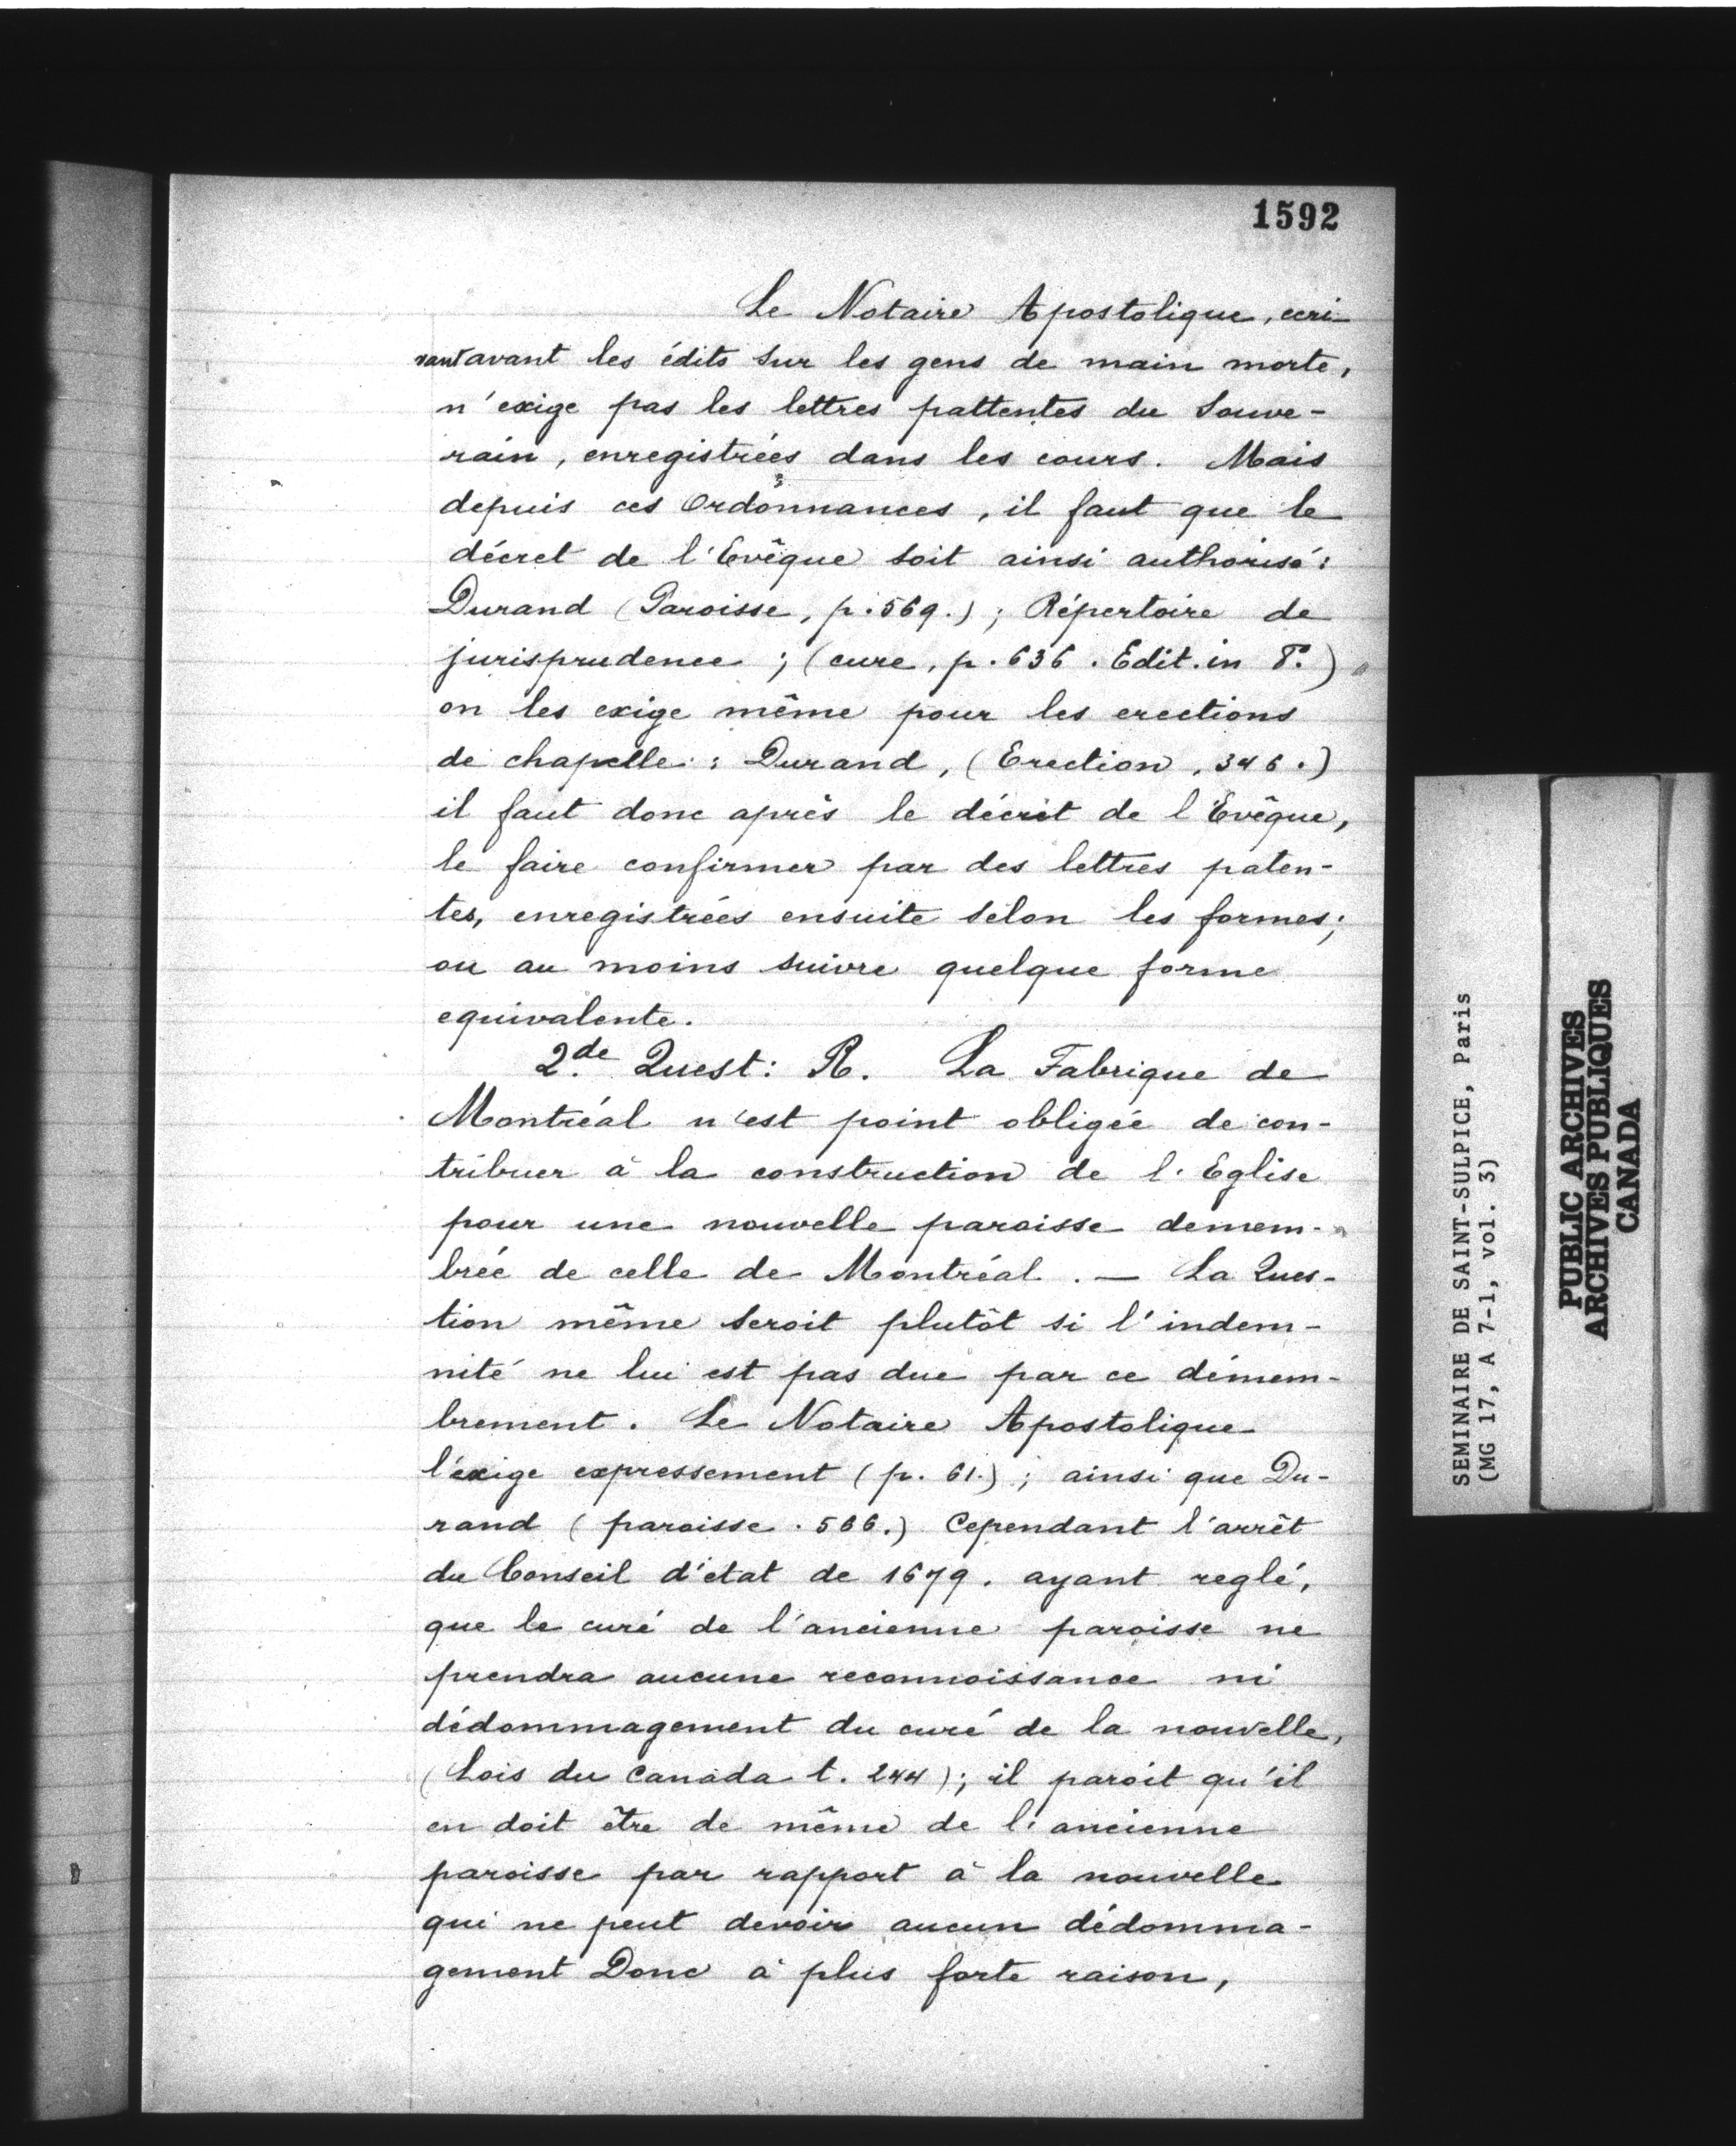 1592
Le Notaire Apostolique, ecri-
vant avant les édits sur les gens de main morte,
n'exige pas les lettres pattentes du Souve-
rain, enregistrées dans les cours. Mais
depuis ces Ordonnances, il faut que le
décret de l'Evêque soit ainsi authorisé:
Durand (Paroisse, p. 569.); Répertoire de
jurisprudence; (cure, p. 636. Edit. in 8º.)
on les exige même pour les erections
de chapelle: Durand, (Erection, 346.)
il faut donc après le décret de l'Evêque,
le faire confirmer par des lettres paten-
tes, enregistrées ensuite selon les formes;
ou au moins suivre quelque forme
equivalente.
2.de Quest: R. La Fabrique de
Montréal n'est point obligée de con-
tribuer à la construction de l'Eglise
pour une nouvelle paroisse demem-
brée de celle de Montréal. — La Ques-
tion même seroit plutôt si l'indem-
nité ne lui est pas due par ce démem-
brement. Le Notaire Apostolique
l'exige expressement (p. 61.); ainsi que Du-
rand (paroisse. 566.) Cependant l'arrêt
du Conseil d'état de 1679. ayant reglé,
que le curé de l'ancienne paroisse ne
prendra aucune reconnoissance ni
dédommagement du curé de la nouvelle,
(Lois du Canada t. 244); il paroit qu'il
en doit être de même de l'ancienne
paroisse par rapport à la nouvelle
qui ne peut devoir aucun dédomma-
gement Donc à plus forte raison,
SEMINAIRE DE SAINT-SULPICE, Paris
(MG 17, A 7-1, vol. 3)
PUBLIC ARCHIVES
ARCHIVES PUBLIQUES
CANADA